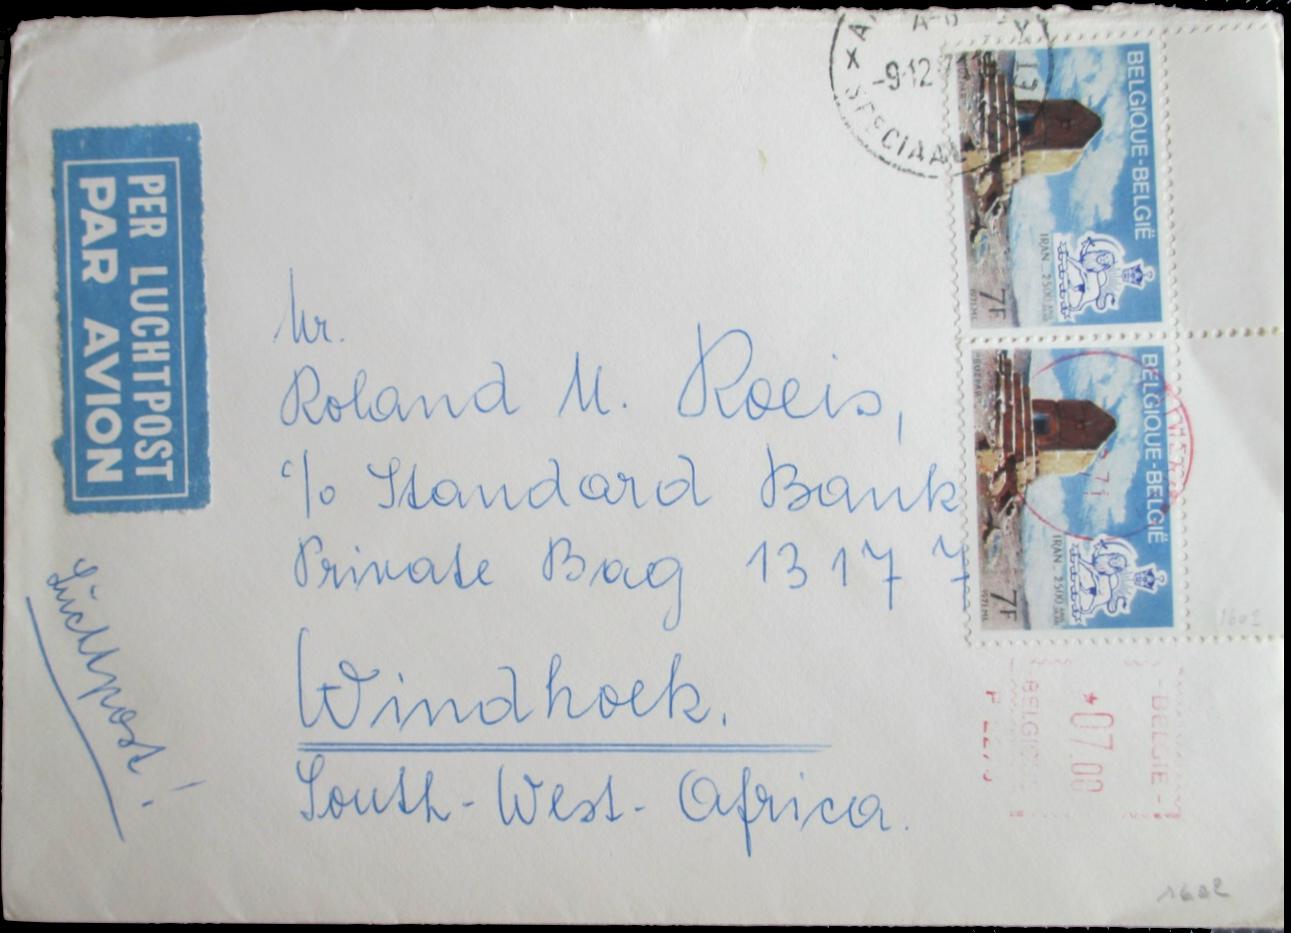 PER LUCHTPOST
PAR AVION
Luchtpost!
Mr.
Roland M. Roeis,
c/o Standard Bank
Private Bag 13177
Windhoek.
South-West-Africa.
-9-12
SPECIAAL
BELGIQUE-BELGIË
IRAN 2500
7F
1971
BELGIQUE-BELGIË
IRAN 2500
7F
1971
71
BELGIQUE
*07.00
-BELGIË-
1602
1602